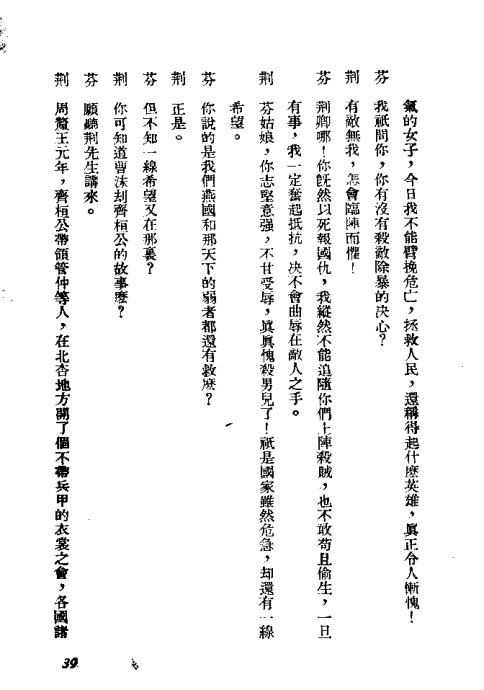 氣的女子，今日我不能臂挽危亡，拯救人民，還稱得起什麼英雄，眞正令人慚愧！
芬　我祇問你，你有沒有殺敵除暴的决心？
荆　有敵無我，怎會臨陣而懼！
芬　荆卿哪！你旣然以死報國仇，我縱然不能追隨你們上陣殺賊，也不敢苟且偷生，一旦
有事，我一定奮起抵抗，决不會曲辱在敵人之手。
荆　芬姑娘，你志堅意强，不甘受辱，眞眞愧殺男兒了！祇是國家雖然危急，却還有一線
希望。
芬　你說的是我們燕國和那天下的弱者都還有救麽？
荆　正是。
芬　但不知一線希望又在那裏？
荆　你可知道曹沫刦齊桓公的故事麽？
芬　願聽荆先生講來。
荆　周釐王元年，齊桓公帶領管仲等人，在北杏地方開了個不帶兵甲的衣裳之會，各國諸
39